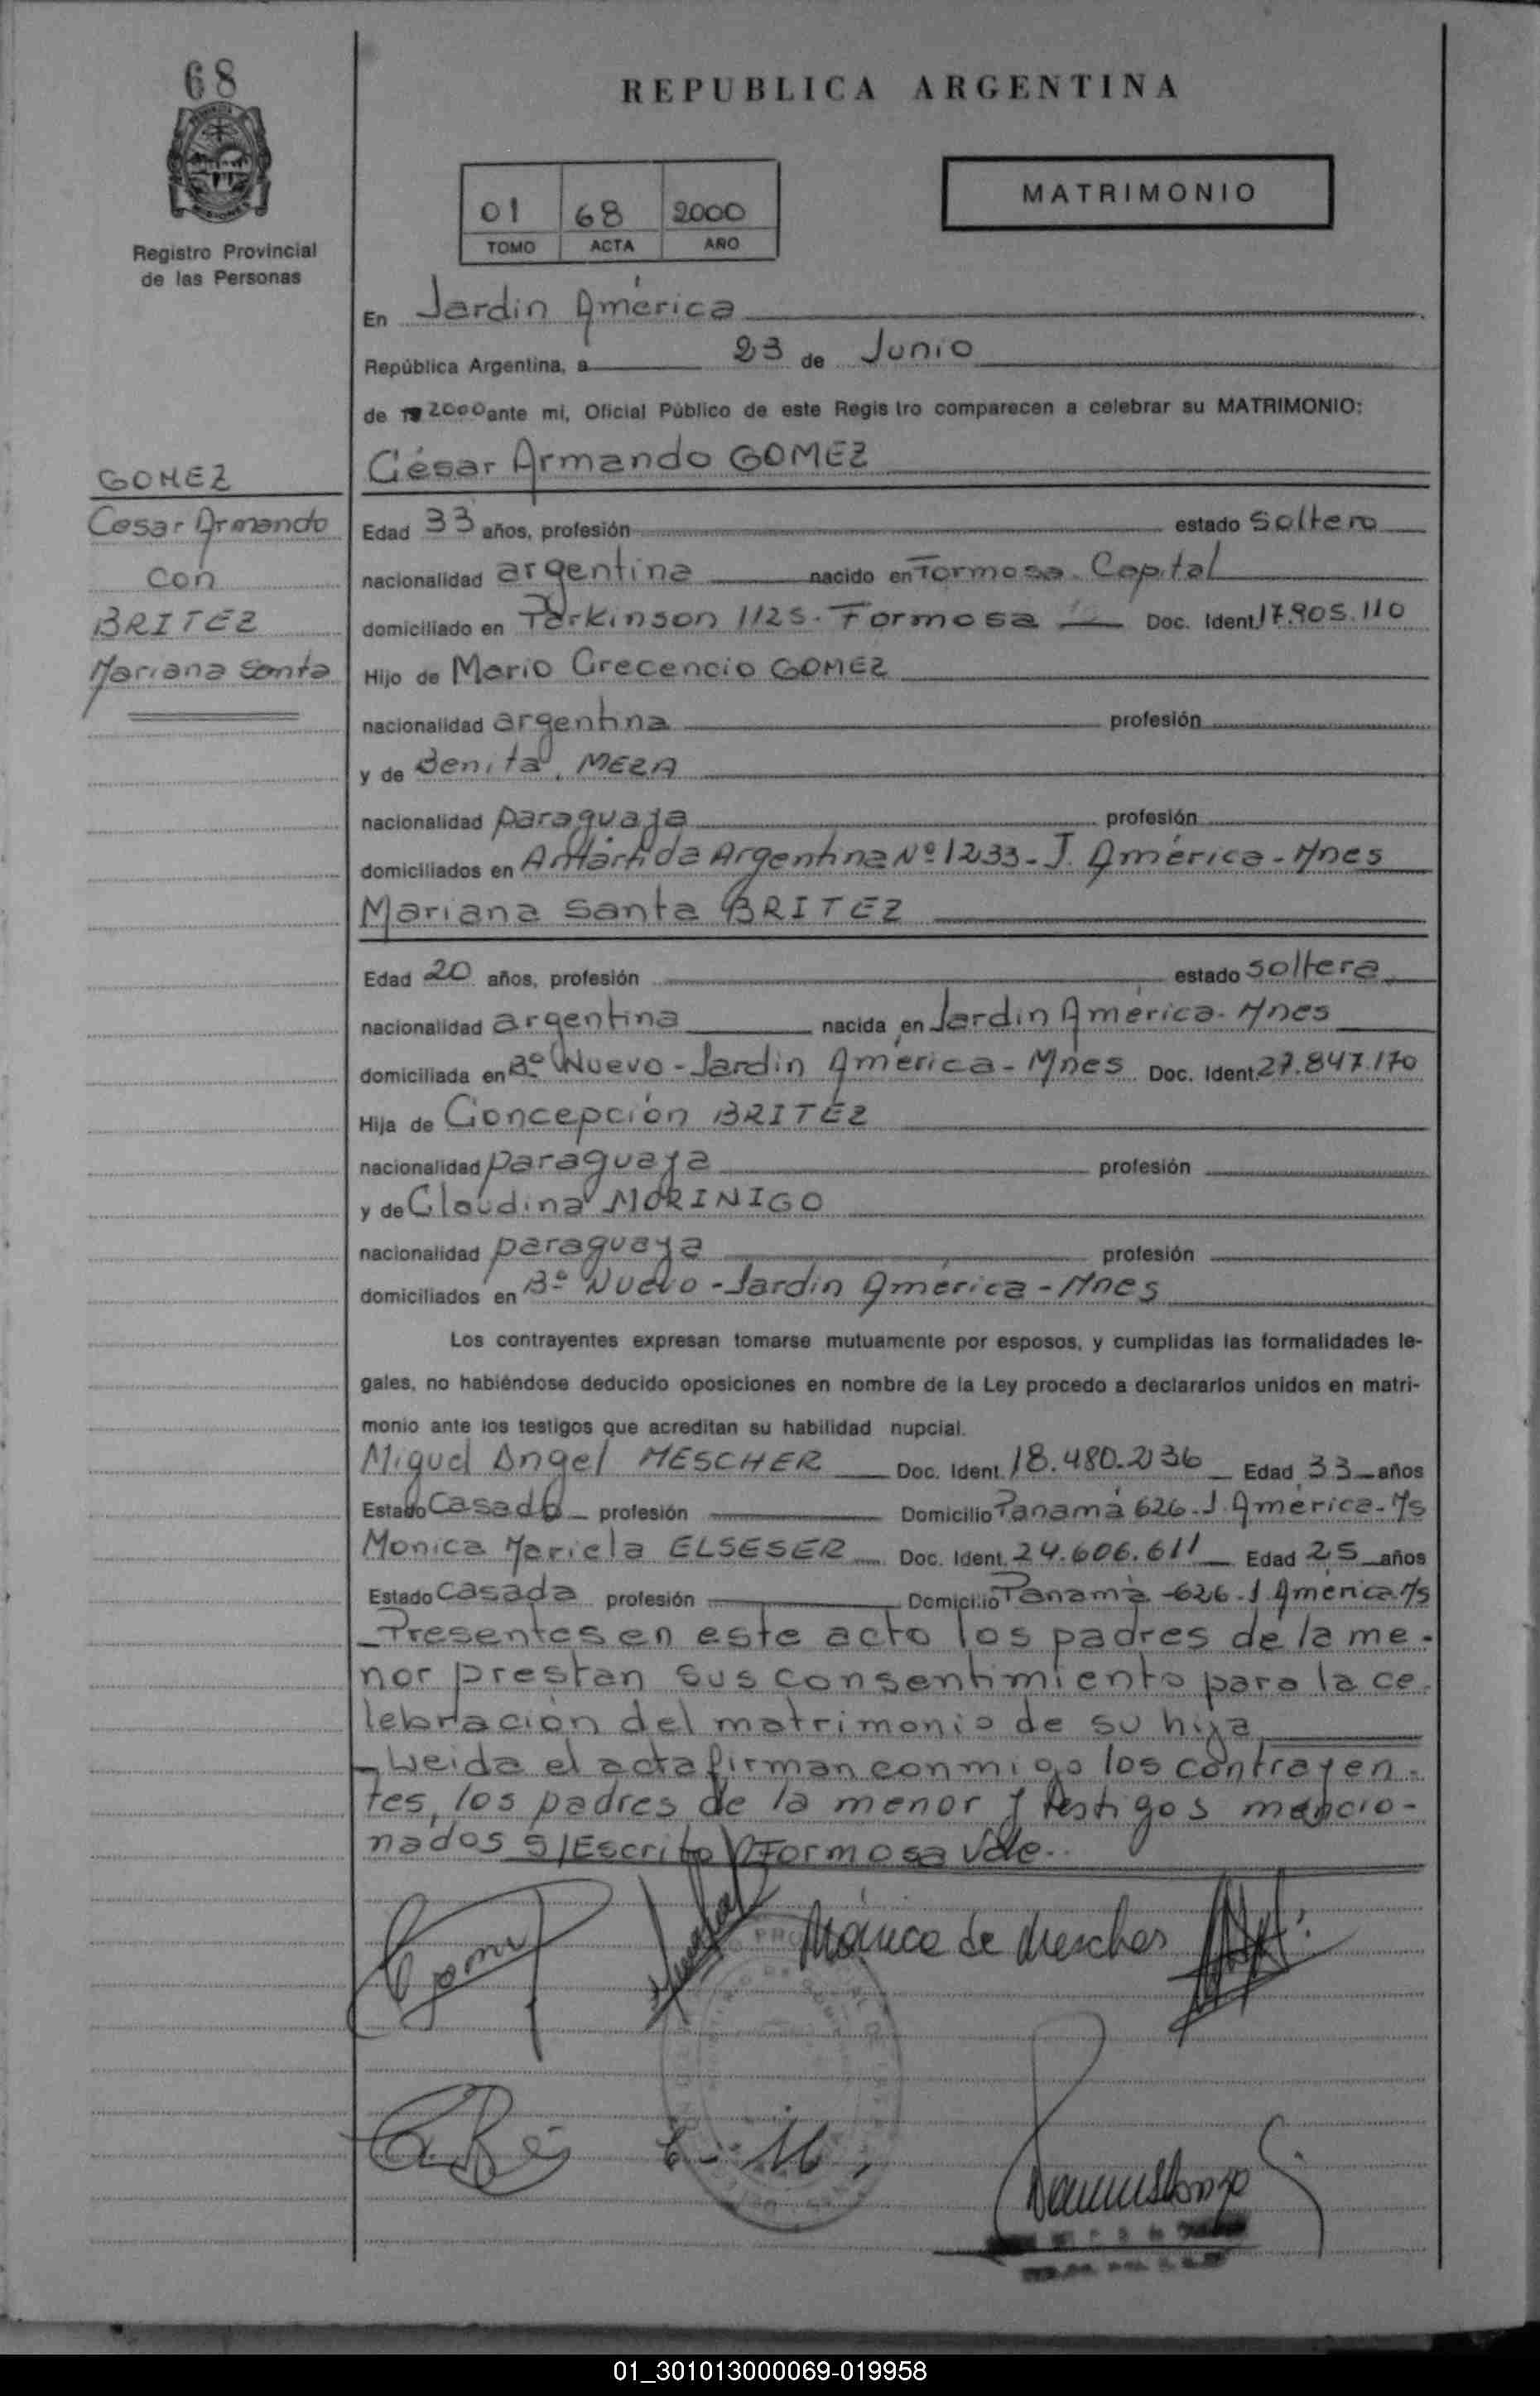 68
Registro Provincial
de las Personas
REPUBLICA ARGENTINA
01 68 2000
TOMO ACTA AÑO
MATRIMONIO
En Jardín América
República Argentina, a 23 de Junio
de 19 2000 ante mí, Oficial Público de este Registro comparecen a celebrar su MATRIMONIO:
GOMEZ
Cesar Armando
con
BRITEZ
Mariana Santa
César Armando GOMEZ
Edad 33 años, profesión estado soltero
nacionalidad argentina nacido en Formosa Capital
domiciliado en Parkinson 1125. Formosa Doc. Ident. 17.905.110
Hijo de Mario Crecencio GOMEZ
nacionalidad argentina profesión
y de Benita MEZA
nacionalidad paraguaya profesión
domiciliados en Antártida Argentina Nº 1233 - J. América - Mnes
Mariana Santa BRITEZ
Edad 20 años, profesión estado soltera
nacionalidad argentina nacida en Jardín América - Mnes
domiciliada en Bº Nuevo - Jardín América - Mnes Doc. Ident. 27.847.170
Hija de Concepción BRITEZ
nacionalidad paraguaya profesión
y de Claudina MORINIGO
nacionalidad paraguaya profesión
domiciliados en Bº Nuevo - Jardín América - Mnes
Los contrayentes expresan tomarse mutuamente por esposos, y cumplidas las formalidades le-
gales, no habiéndose deducido oposiciones en nombre de la Ley procedo a declararlos unidos en matri-
monio ante los testigos que acreditan su habilidad nupcial.
Miguel Angel MESCHER Doc. Ident. 18.480.236 Edad 33 años
Estado Casado profesión Domicilio Panamá 626 - J. América - Ms
Monica Mariela ELSESER Doc. Ident. 24.606.611 Edad 25 años
Estado casada profesión Domicilio Panamá - 626 - J. América. Ms
- Presentes en este acto los padres de la me-
nor prestan sus consentimiento para la ce-
lebración del matrimonio de su hija
- Leida el acta firman conmigo los contrayen-
tes, los padres de la menor y testigos mencio-
nados S/Escrito Formosa Vale.
Mónica de Mescher
01_301013000069-019958